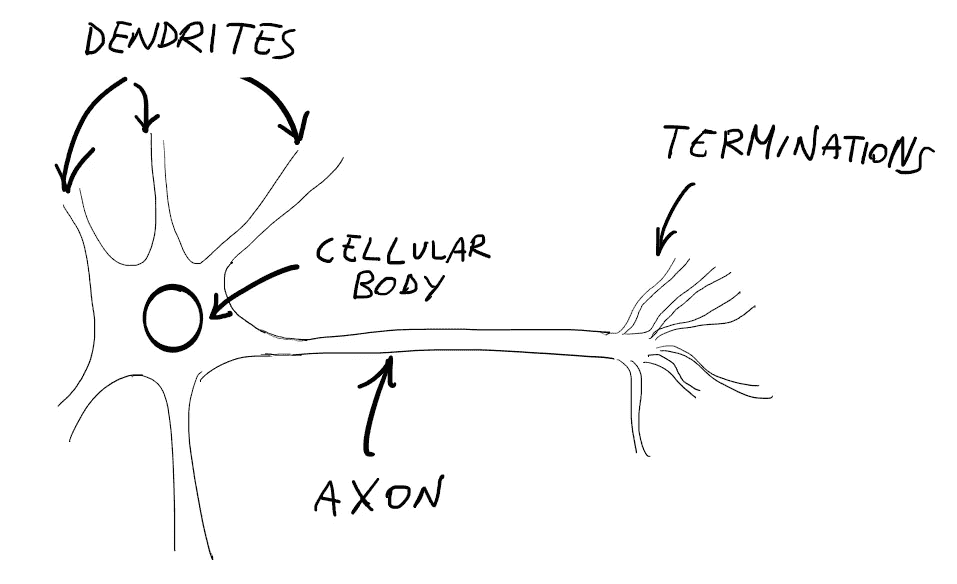 DENDRITES
TERMINATIONS
CELLULAR
BODY
AXON